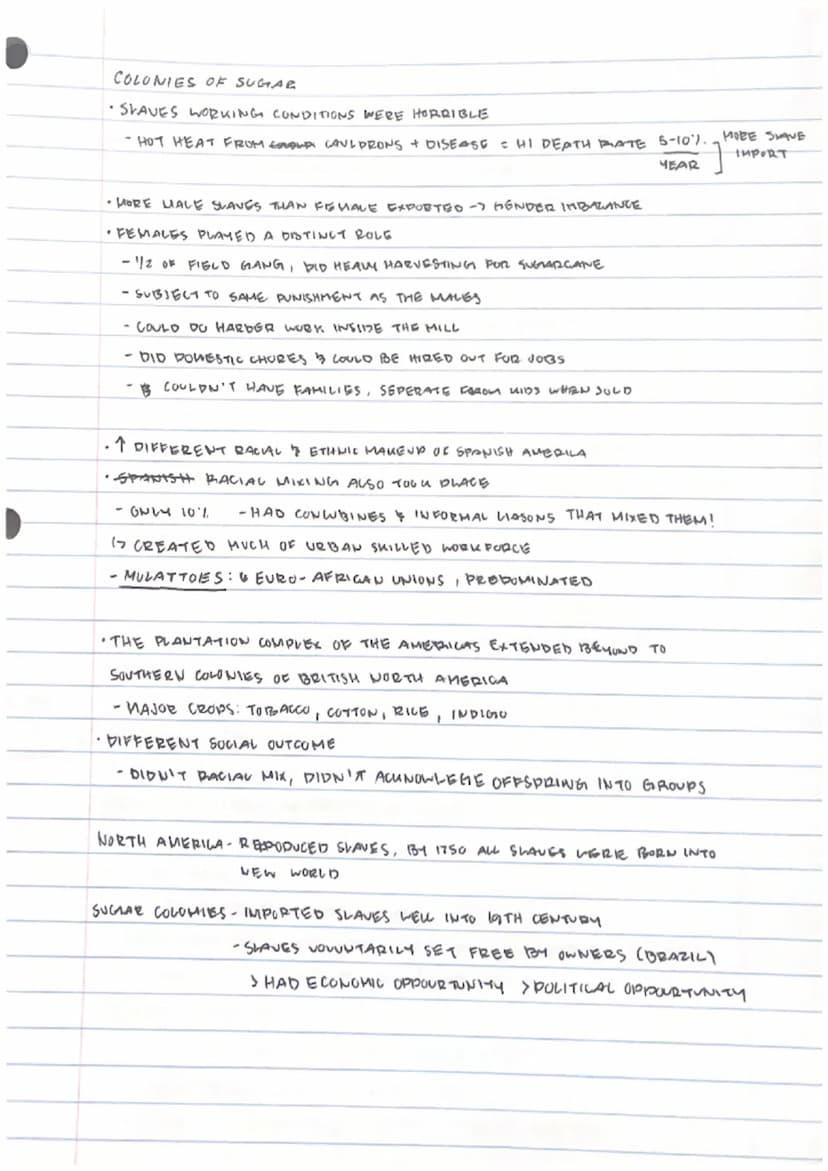 COLONIES OF SUGAR
• SLAVES WORKING CONDITIONS WERE HORRIBLE
- HOT HEAT FROM CAULDRONS + DISEASE = HI DEATH RATE 5-10% / YEAR ] MORE SLAVE IMPORT
• MORE MALE SLAVES THAN FEMALE EXPORTED -> GENDER IMBALANCE
• FEMALES PLAYED A DISTINCT ROLE
- 1/2 OF FIELD GANG, DID HEAVY HARVESTING FOR SUGARCANE
- SUBJECT TO SAME PUNISHMENT AS THE MALES
- COULD DO HARDER WORK INSIDE THE MILL
- DID DOMESTIC CHORES & COULD BE HIRED OUT FOR JOBS
- COULDN'T HAVE FAMILIES, SEPERATE FROM KIDS WHEN SOLD
• ↑ DIFFERENT RACIAL & ETHNIC MAKEUP OF SPANISH AMERICA
• SPANISH RACIAL MIXING ALSO TOOK PLACE
- ONLY 10% - HAD CONCUBINES & INFORMAL LIASONS THAT MIXED THEM!
↳ CREATED MUCH OF URBAN SKILLED WORKFORCE
- MULATTOES: EURO-AFRICAN UNIONS, PREDOMINATED
• THE PLANTATION COMPLEX OF THE AMERICAS EXTENDED BEYOND TO
SOUTHERN COLONIES OF BRITISH NORTH AMERICA
- MAJOR CROPS: TOBACCO, COTTON, RICE, INDIGO
• DIFFERENT SOCIAL OUTCOME
- DIDN'T RACIAL MIX, DIDN'T ACKNOWLEGE OFFSPRING INTO GROUPS
NORTH AMERICA - REPRODUCED SLAVES, BY 1750 ALL SLAVES WERE BORN INTO
NEW WORLD
SUGAR COLONIES - IMPORTED SLAVES WELL INTO 19TH CENTURY
- SLAVES VOLUNTARILY SET FREE BY OWNERS (BRAZIL)
> HAD ECONOMIC OPPOURTUNITY > POLITICAL OPPOURTUNITY